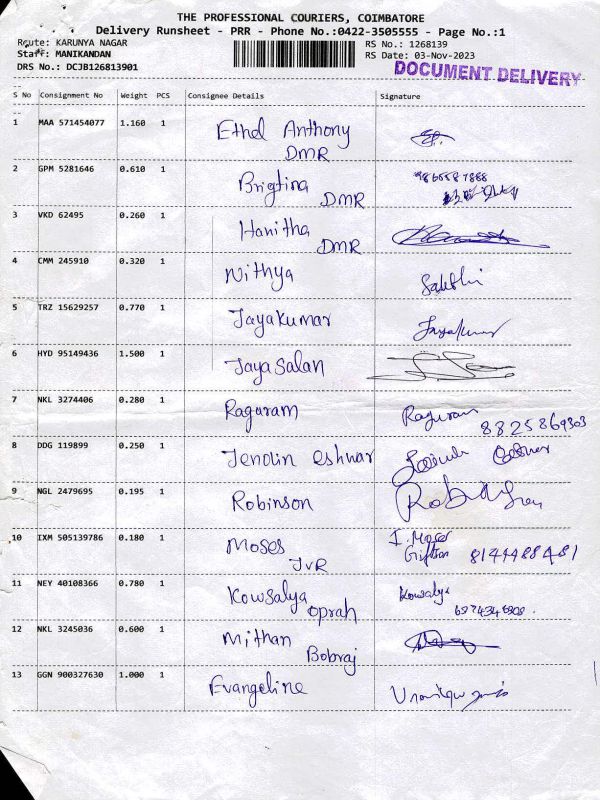 THE PROFESSIONAL COURIERS, COIMBATORE
Delivery Runsheet - PRR - Phone No.:0422-3505555 - Page No.:1
Route: KARUNYA NAGAR RS No.: 1268139
Staff: MANIKANDAN RS Date: 03-Nov-2023
DRS No.: DCJB126813901 DOCUMENT DELIVERY
S No Consignment No Weight PCS Consignee Details Signature
1 MAA 571454077 1.160 1 Ethel Anthony
DMR
2 GPM 5281646 0.610 1 Brigtina
DMR
3 VKD 62495 0.260 1 Hanitha
DMR
4 CMM 245910 0.320 1 Nithya Sakthi
5 TRZ 15629257 0.770 1 Jayakumar Jayakumar
6 HYD 95149436 1.500 1 Jaya Salan
7 NKL 3274406 0.280 1 Raguram Raguram
8825869303
8 DDG 119899 0.250 1 Jenolin eshwar
9 NGL 2479695 0.195 1 Robinson
10 IXM 505139786 0.180 1 Moses I. Moses
JVR Giftson 8144488481
11 NEY 40108366 0.780 1 Kowsalya Kowsalya
oprah
12 NKL 3245036 0.600 1 Mithan
Bobraj
13 GGN 900327630 1.000 1 Evangeline